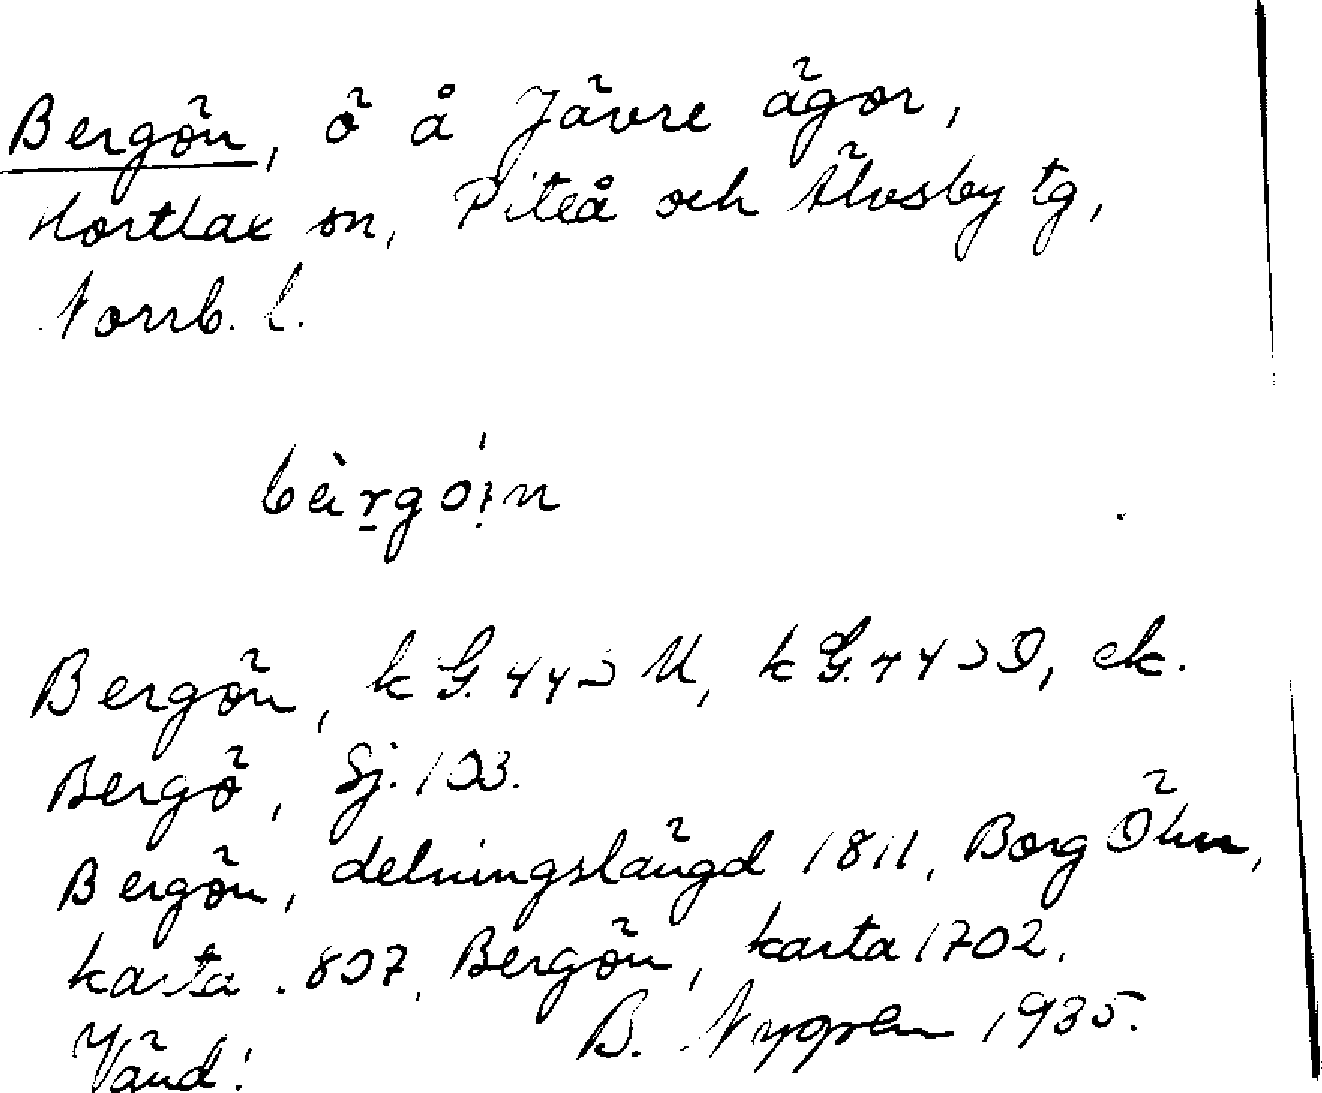 Bergön, ö å Jävre ägor,
Hortlax sn, Piteå och Älvsby tg,
Norrb. l.
Bergön, k G. 442 U, k G. 442 D, ek.
Bergö, Sj. 103.
Bergön, delningslängd 1811, Borg Öhn,
karta 1807, Bergön, karta 1702.
Vänd! B. Nygren 1935.